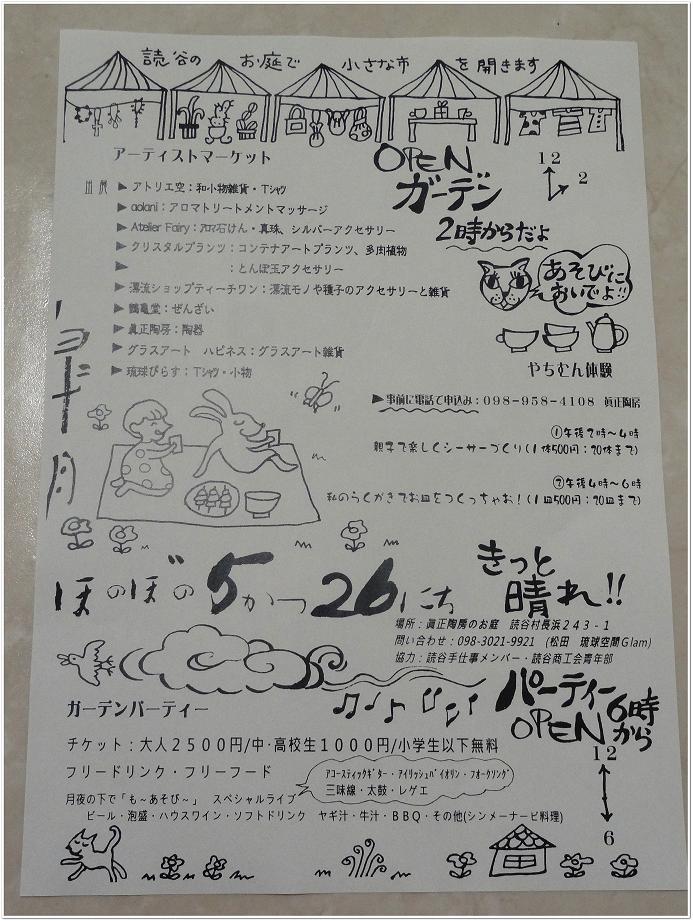 読谷の お庭で 小さな市 を開きます
アーティストマーケット
OPEN
ガーデン
12
2
2時からだよ
出展
▶アトリエ空：和小物雑貨・Tシャツ
▶aolani：アロマトリートメントマッサージ
▶Atelier Fairy：アロマ石けん・真珠、シルバーアクセサリー
▶クリスタルプランツ：コンテナアートプランツ、多肉植物
▶ ：とんぼ玉アクセサリー
▶漂流ショップティーチワン：漂流モノや種子のアクセサリーと雑貨
▶鶴亀堂：ぜんざい
▶眞正陶房：陶器
▶グラスアート ハピネス：グラスアート雑貨
▶琉球ぴらす：Tシャツ・小物
あそびに
おいでよ!!
やちむん体験
▶事前に電話で申込み：098-958-4108 眞正陶房
①午後2時～4時
親子で楽しくシーサーづくり（1体500円：20体まで）
②午後4時～6時
私のらくがきでお皿をつくっちゃお！（1皿500円：20皿まで）
月
ほのぼの 5がつ 26にち
きっと
晴れ!!
場所：眞正陶房のお庭 読谷村長浜243-1
問い合わせ：098-3021-9921 (松田 琉球空間Glam)
協力：読谷手仕事メンバー・読谷商工会青年部
パーティー
OPEN
6時
から
12
6
ガーデンパーティー
チケット：大人2500円/中・高校生1000円/小学生以下無料
フリードリンク・フリーフード
アコースティックギター・アイリッシュバイオリン・フォークソング
三味線・太鼓・レゲエ
月夜の下で「も～あそび～」 スペシャルライブ
ビール・泡盛・ハウスワイン・ソフトドリンク ヤギ汁・牛汁・BBQ・その他(シンメーナービ料理)